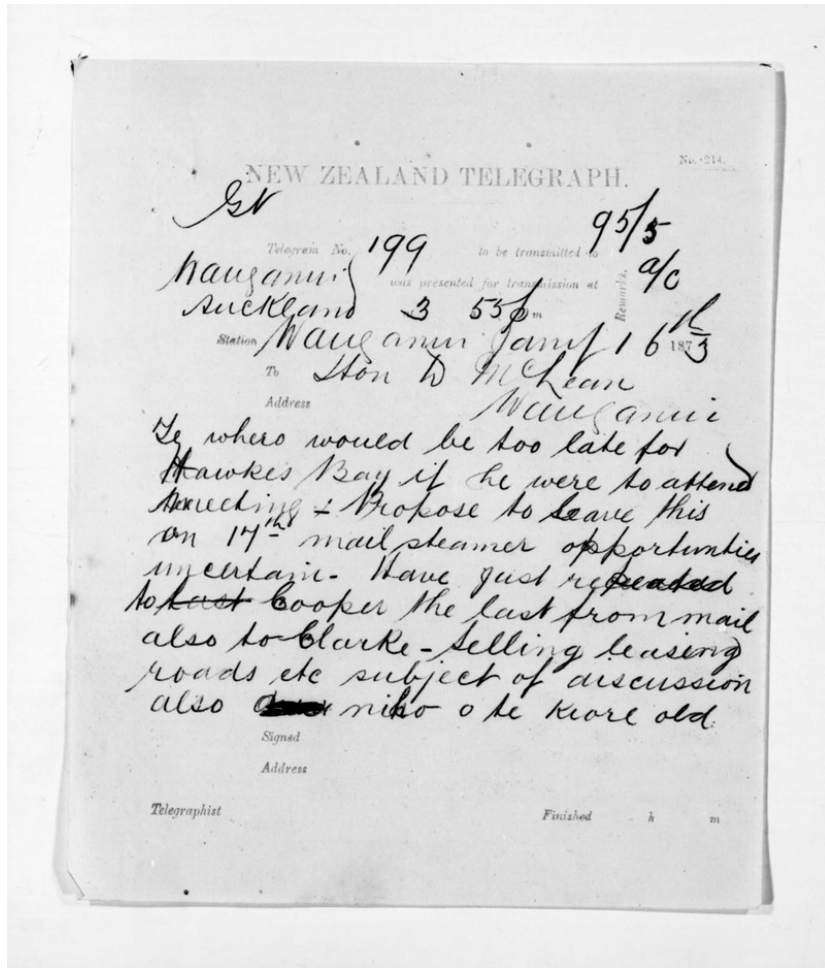 No. 214.
NEW ZEALAND TELEGRAPH.
GN
95/5
Telegram No. 199 to be transmitted to
Wanganui was presented for transmission at
Remarks. a/c
Auckland 3 55 p m
Station Wanganui Jany 16th 1873
To Hon D McLean
Address Wanganui
Te whero would be too late for
Hawkes Bay if he were to attend
meeting - Propose to leave this
on 17th mail steamer opportunties
uncertain - Have just repeated
to last Cooper the last from mail
also to Clarke - Selling leasing
roads etc subject of discussion
also niho o te kiore old
Signed
Address
Telegraphist Finished h m